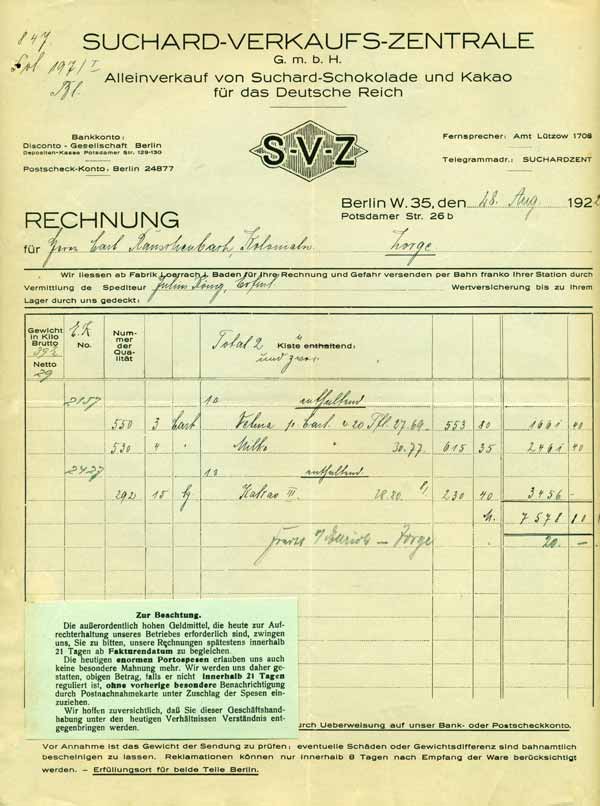 847
Fol 197/I
Bl.
SUCHARD-VERKAUFS-ZENTRALE
G. m. b. H.
Alleinverkauf von Suchard-Schokolade und Kakao
für das Deutsche Reich
Bankkonto:
Disconto - Gesellschaft Berlin
Depositen-Kasse Potsdamer Str. 129-130
Postscheck-Konto: Berlin 24877
S-V-Z
Fernsprecher: Amt Lützow 1708
Telegrammadr.: SUCHARDZENT
Berlin W. 35, den 28. Aug. 1922
Potsdamer Str. 26 b
RECHNUNG
für Herrn Carl Rauschenbach, Kolonialw. Zorge
Wir liessen ab Fabrik Loerrach i. Baden für Ihre Rechnung und Gefahr versenden per Bahn franko Ihrer Station durch
Vermittlung de Spediteur Julius König, Erfurt Wertversicherung bis zu Ihrem
Lager durch uns gedeckt:
Gewicht in Kilo Brutto Netto 29
E.K. No.
Nummer der Qualität
Total 2 Kiste enthaltend:
und zwar
2157 enthaltend
550 3 Cart Velma p. Cart. v. 20 Tfl. 27.69 553 80 1661 40
530 4 " Milka " 30.77 615 35 2461 40
2427 enthaltend
292 15 Kg Kakao III. 230 40 3456 -
M. 7578 80
Zorge 20. -
Zur Beachtung.
Die außerordentlich hohen Geldmittel, die heute zur Auf-
rechterhaltung unseres Betriebes erforderlich sind, zwingen
uns, Sie zu bitten, unsere Rechnungen spätestens innerhalb
21 Tagen ab Fakturendatum zu begleichen.
Die heutigen enormen Portospesen erlauben uns auch
keine besondere Mahnung mehr. Wir werden uns daher ge-
statten, obigen Betrag, falls er nicht innerhalb 21 Tagen
reguliert ist, ohne vorherige besondere Benachrichtigung
durch Postnachnahmekarte unter Zuschlag der Spesen ein-
zuziehen.
Wir hoffen zuversichtlich, daß Sie dieser Geschäftshand-
habung unter den heutigen Verhältnissen Verständnis ent-
gegenbringen werden.
durch Ueberweisung auf unser Bank- oder Postscheckkonto.
Vor Annahme ist das Gewicht der Sendung zu prüfen; eventuelle Schäden oder Gewichtsdifferenz sind bahnamtlich
bescheinigen zu lassen. Reklamationen können nur innerhalb 8 Tagen nach Empfang der Ware berücksichtigt
werden. — Erfüllungsort für beide Teile Berlin.